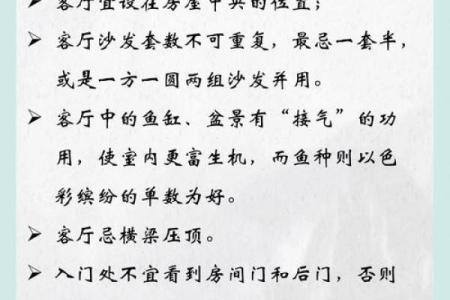 客厅宜设在房屋中央的位置；
➢ 客厅沙发套数不可重复，最忌一套半，
或是一方一圆两组沙发并用。
➢ 客厅中的鱼缸、盆景有“接气”的功
用，使室内更富生机，而鱼种则以色
彩缤纷的单数为好。
➢ 客厅忌横梁压顶。
➢ 入门处不宜看到房间门和后门，否则